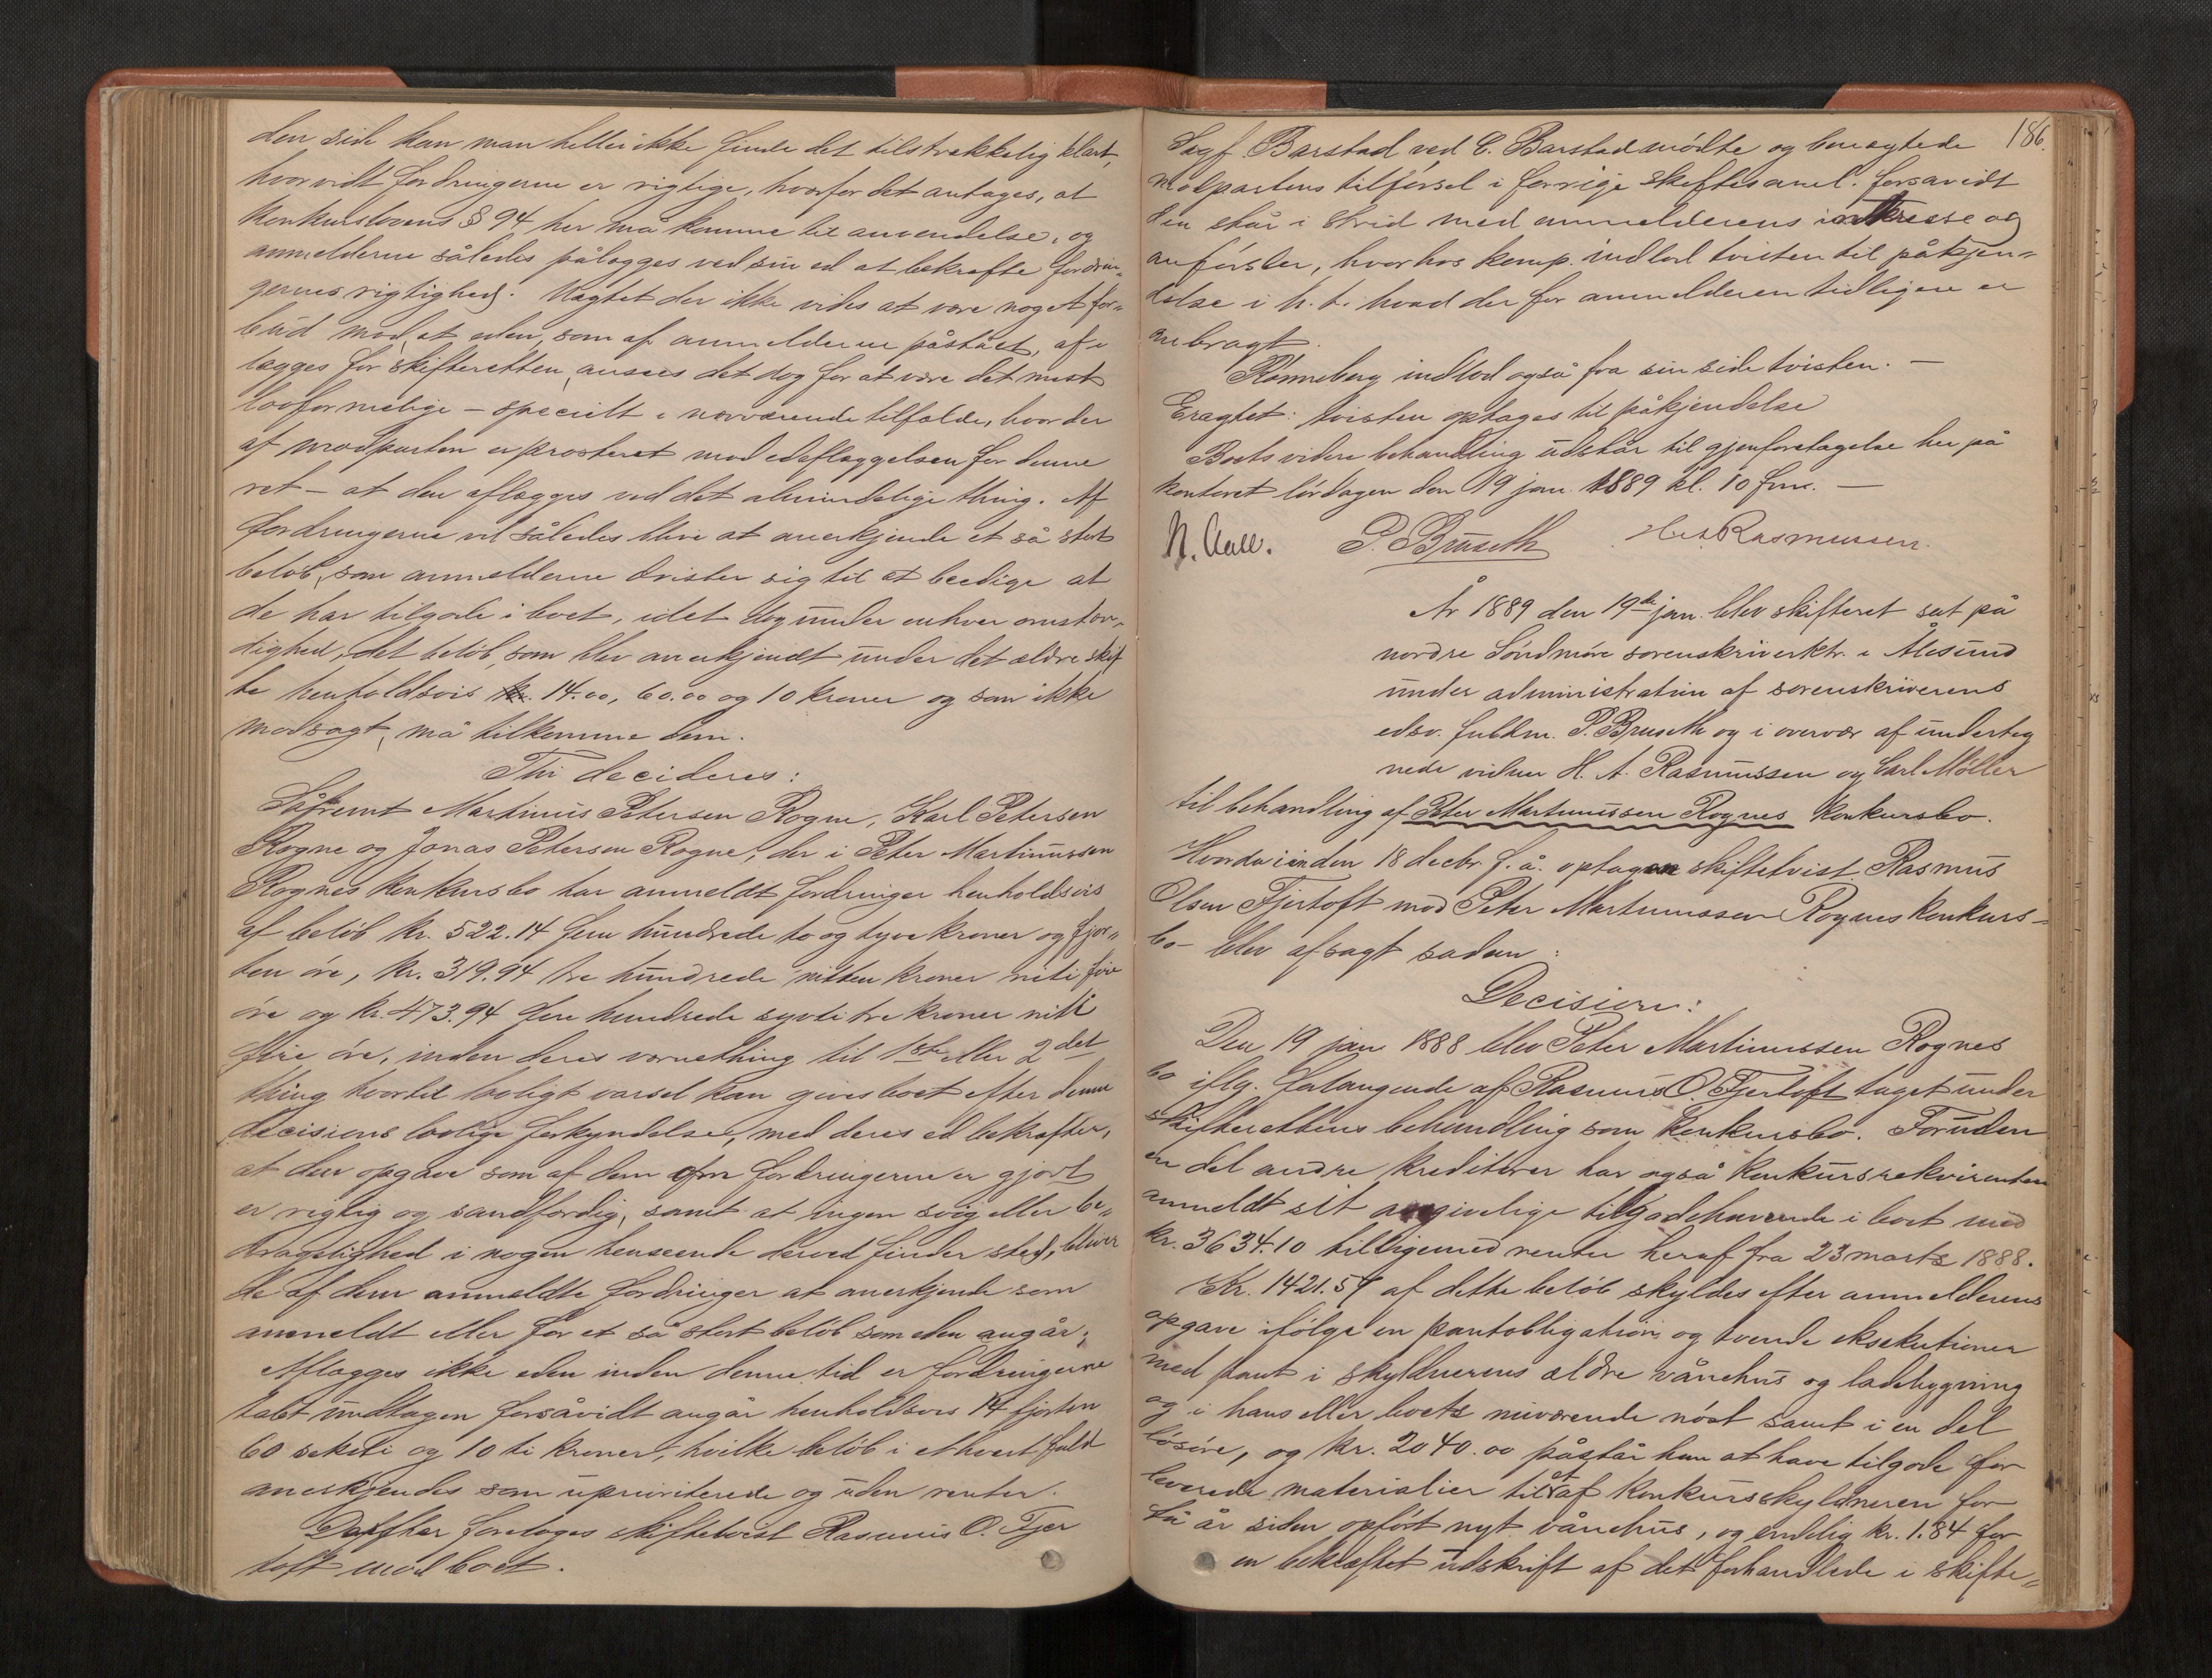 den side kan man heller ikke finde det tilstrækkelig klart,
hvorvidt fordringerne er rigtige, hvorfor det antages, at
konkurslovens § 94 her må komme til anvendelse, og
anmelderne således pålægges ved sin ed at bekræfte fordrin-
gernes rigtighed. Uagtet der ikke vides at være noget for-
bud mod, at eden, som af anmelderne påstået, af-
lægges for skifteretten, ansees det dog for at være det mest
lovformelige – specielt i nærværende tilfælde, hvor der
af modparten er protesteret mod edsaflæggelsen for denne
ret – at den aflægges ved det almindelige thing. Af
fordringerne vil således blive at anerkjende et så stort
beløb, som anmelderne drister sig til at beedige at
de har tilgode i boet, idet dog under enhver omstæn-
dighed, det beløb, som blev anerkjendt under det ældre skif
te henholdsvis kr. 14.00, 60.00 og 10 kroner og som ikke
modsagt, må tilkomme dem.
Thi decideres:
Såfremt Martinus Petersen Rogne, Karl Petersen
Rogne og Jonas Petersen Rogne, der i Peter Martinussen
Rognes konkursbo har anmeldt fordringer henholdsvis
af beløb kr. 522.14 fem hundrede to og tyve kroner og fjor-
ten øre, kr. 319.94 tre hundrede nitten kroner niti fire
øre og kr. 473.94 fire hundrede sytti tre kroner niti
fire øre, inden deresværnething til 1ste eller 2det
thing hvortil lovligt varsel kan gives boet efter denne
decisions lovlige forkyndelse, med deres ed bekræfter,
at den opgave som af dem om fordringerne er gjort
er rigtig og sandfærdig, samt at ingen svig eller be-
dragelighed i nogen henseende derved finder sted, bliver
de af dem anmeldte fordringer at anerkjende som
anmeldt eller for et så stort beløb som eden angår;
Aflægges ikke eden inden denne tid er fordringerne
tabt undtagen forsåvidt angår henholdsvis 14 fjorten
60 seksti og 10 ti kroner, hvilke beløb i ethvert fald
anerkjendes som uprioriterede og uden renter.
Derefter foretoges skiftetvist Rasmus O. Fjer
toft mod boet.
186.
Sagf. Barstad ved C. Barstad mødte og benegtede
modpartens tilførsel i forrige skiftesaml. forsavidt
den står i strid med anmelderens interesse og
anførsler, hvorhos komp. indlod tvisten til påkjen-
delse i h. t. hvad der for anmelderen tidligere er
anbragt.
Rønneberg indlod også fra sin side tvisten. –
Eragtet: tvisten optages til påkjendelse
Boets videre behandling udstår til gjenforetagelse her på
kontoret lørdagen den 19 jan. 1889 kl. 10 fm. –
N. Aall. P. Bruseth H A Rasmussen.
År 1889 den 19de jan. blev skifteret sat på
nordre Søndmøre sorenskriverktr. i Ålesund
under administration af sorenskriverens
edsv. fuldm. P. Bruseth og i overvær af underteg
nede vidner H. A. Rasmussen og Carl Møller
til behandling af Peter Martinussen Rognes konkursbo.
Hvorda i inden 18 decbr. f. å. optagen skiftetvist Rasmus
Olsen Fjertoft mod Peter Martinussen Rognes konkurs-
bo – blev afsagt sadan:
Decision:
Den 19 jan 1888 blev Peter Martinussen Rognes
bo iflg. forlangende af Rasmus O. Fjertoft taget under
skifterettens behandling som konkursbo. Foruden
en del andre kreditorer har også konkursrekvirenten
anmeldt sit angivelige tilgodehavende i boet med
kr. 3634.10 tilligemed renter heraf fra 23 marts 1888.
Kr. 1421.54 af dette beløb skyldes efter anmelderens
opgave ifølge en pantobligation og tvende eksekutioner
med pant i skyldnerens ældre vånehus og ladebygning
og i hans eller boets nuværende nøst samt i en del
løsøre, og kr. 2040.00 påstår han at have tilgode for
leverede materialier til et af konkursskyldneren for
få år siden opført nyt vånehus, og endelig kr. 1.84 for
en bekræftet udskrift af det forhandlede i skifte-